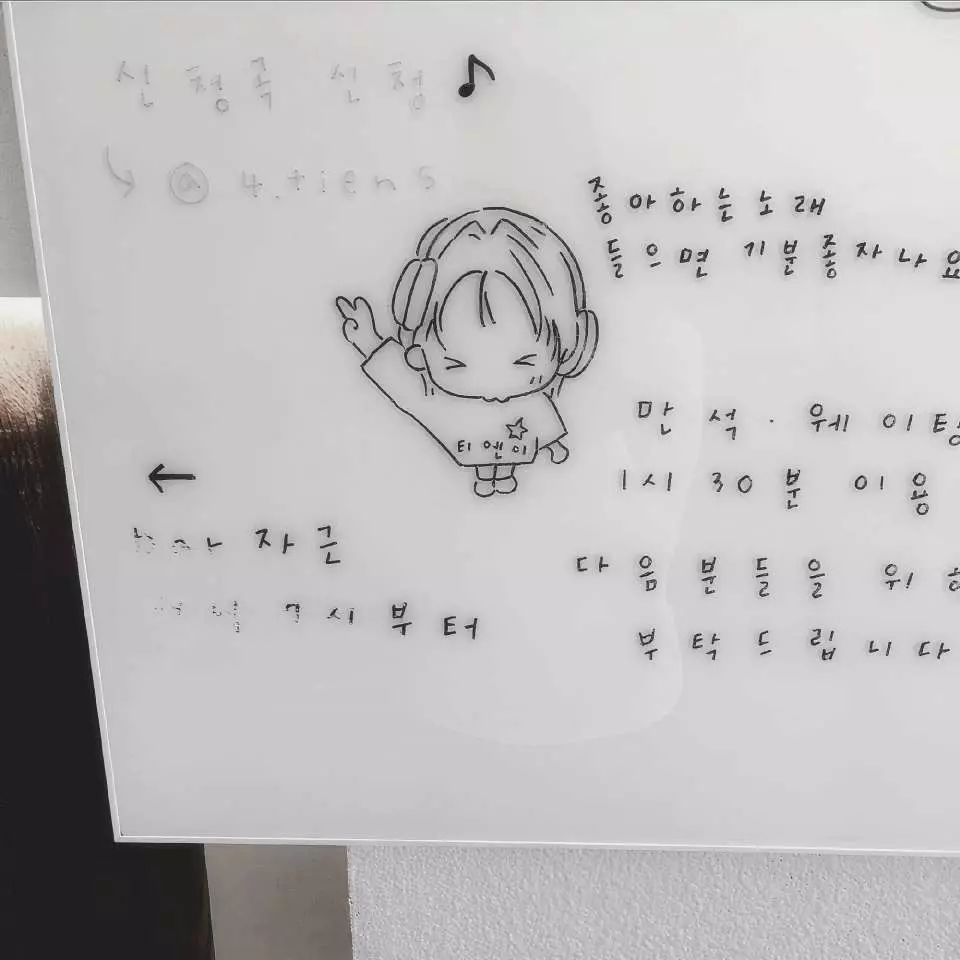 신청곡 신청
@4.tiens
좋아하는 노래
들으면 기분 좋자나요
티엔이
만석·웨이팅
1시 30분 이용
bar 자근
7시부터
다음 분들을 위해
부탁드립니다